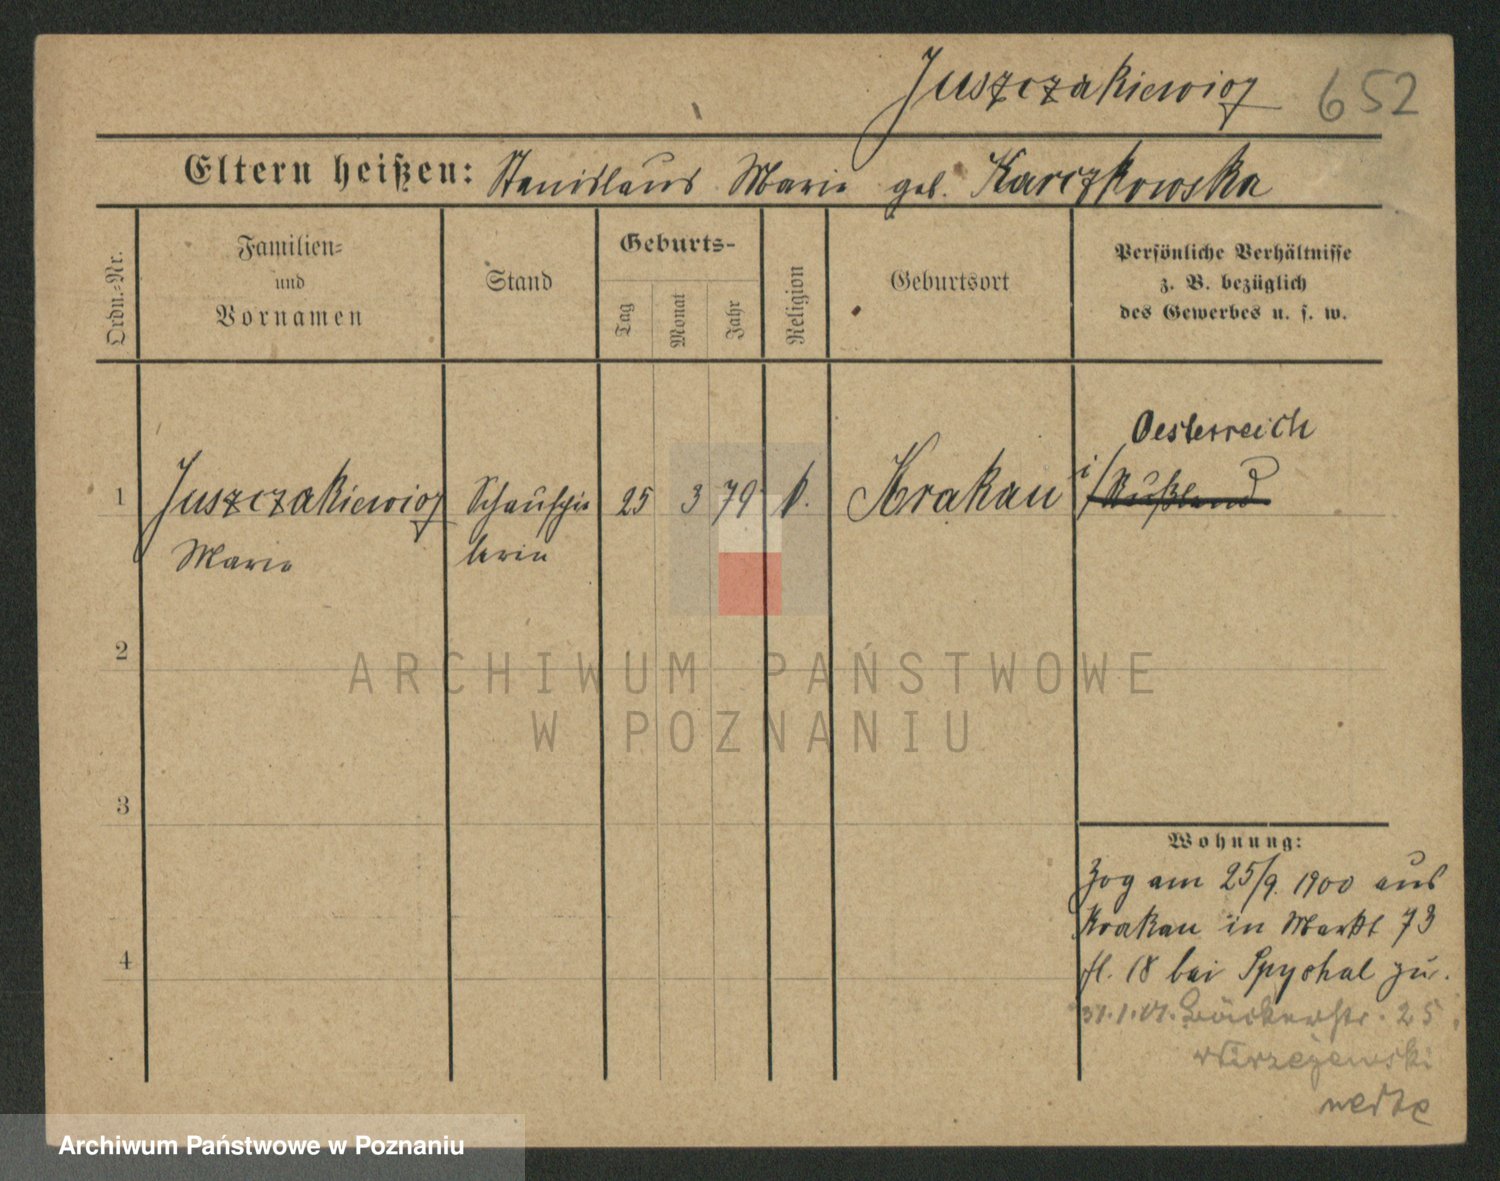 Juszczakiewicz 652
Eltern heißen: Stanislaus Marie geb. Karczkowska
Ordn.-Nr.
Familien-
und
Vornamen
Stand
Geburts-
Tag
Monat
Jahr
Religion
Geburtsort
Persönliche Verhältnisse
z. B. bezüglich
des Gewerbes u. s. w.
Oesterreich
1 Juszczakiewicz Schauspie 25 3 79 k. Krakau i/Rußland
Marie lerin
2
ARCHIWUM PAŃSTWOWE
W POZNANIU
3
Wohnung:
Zog am 25/9. 1900 aus
Krakau in Markt 73
fl. 18 bei Spychal zu.
4
31.1.01. Bäckerstr. 25
Archiwum Państwowe w Poznaniu